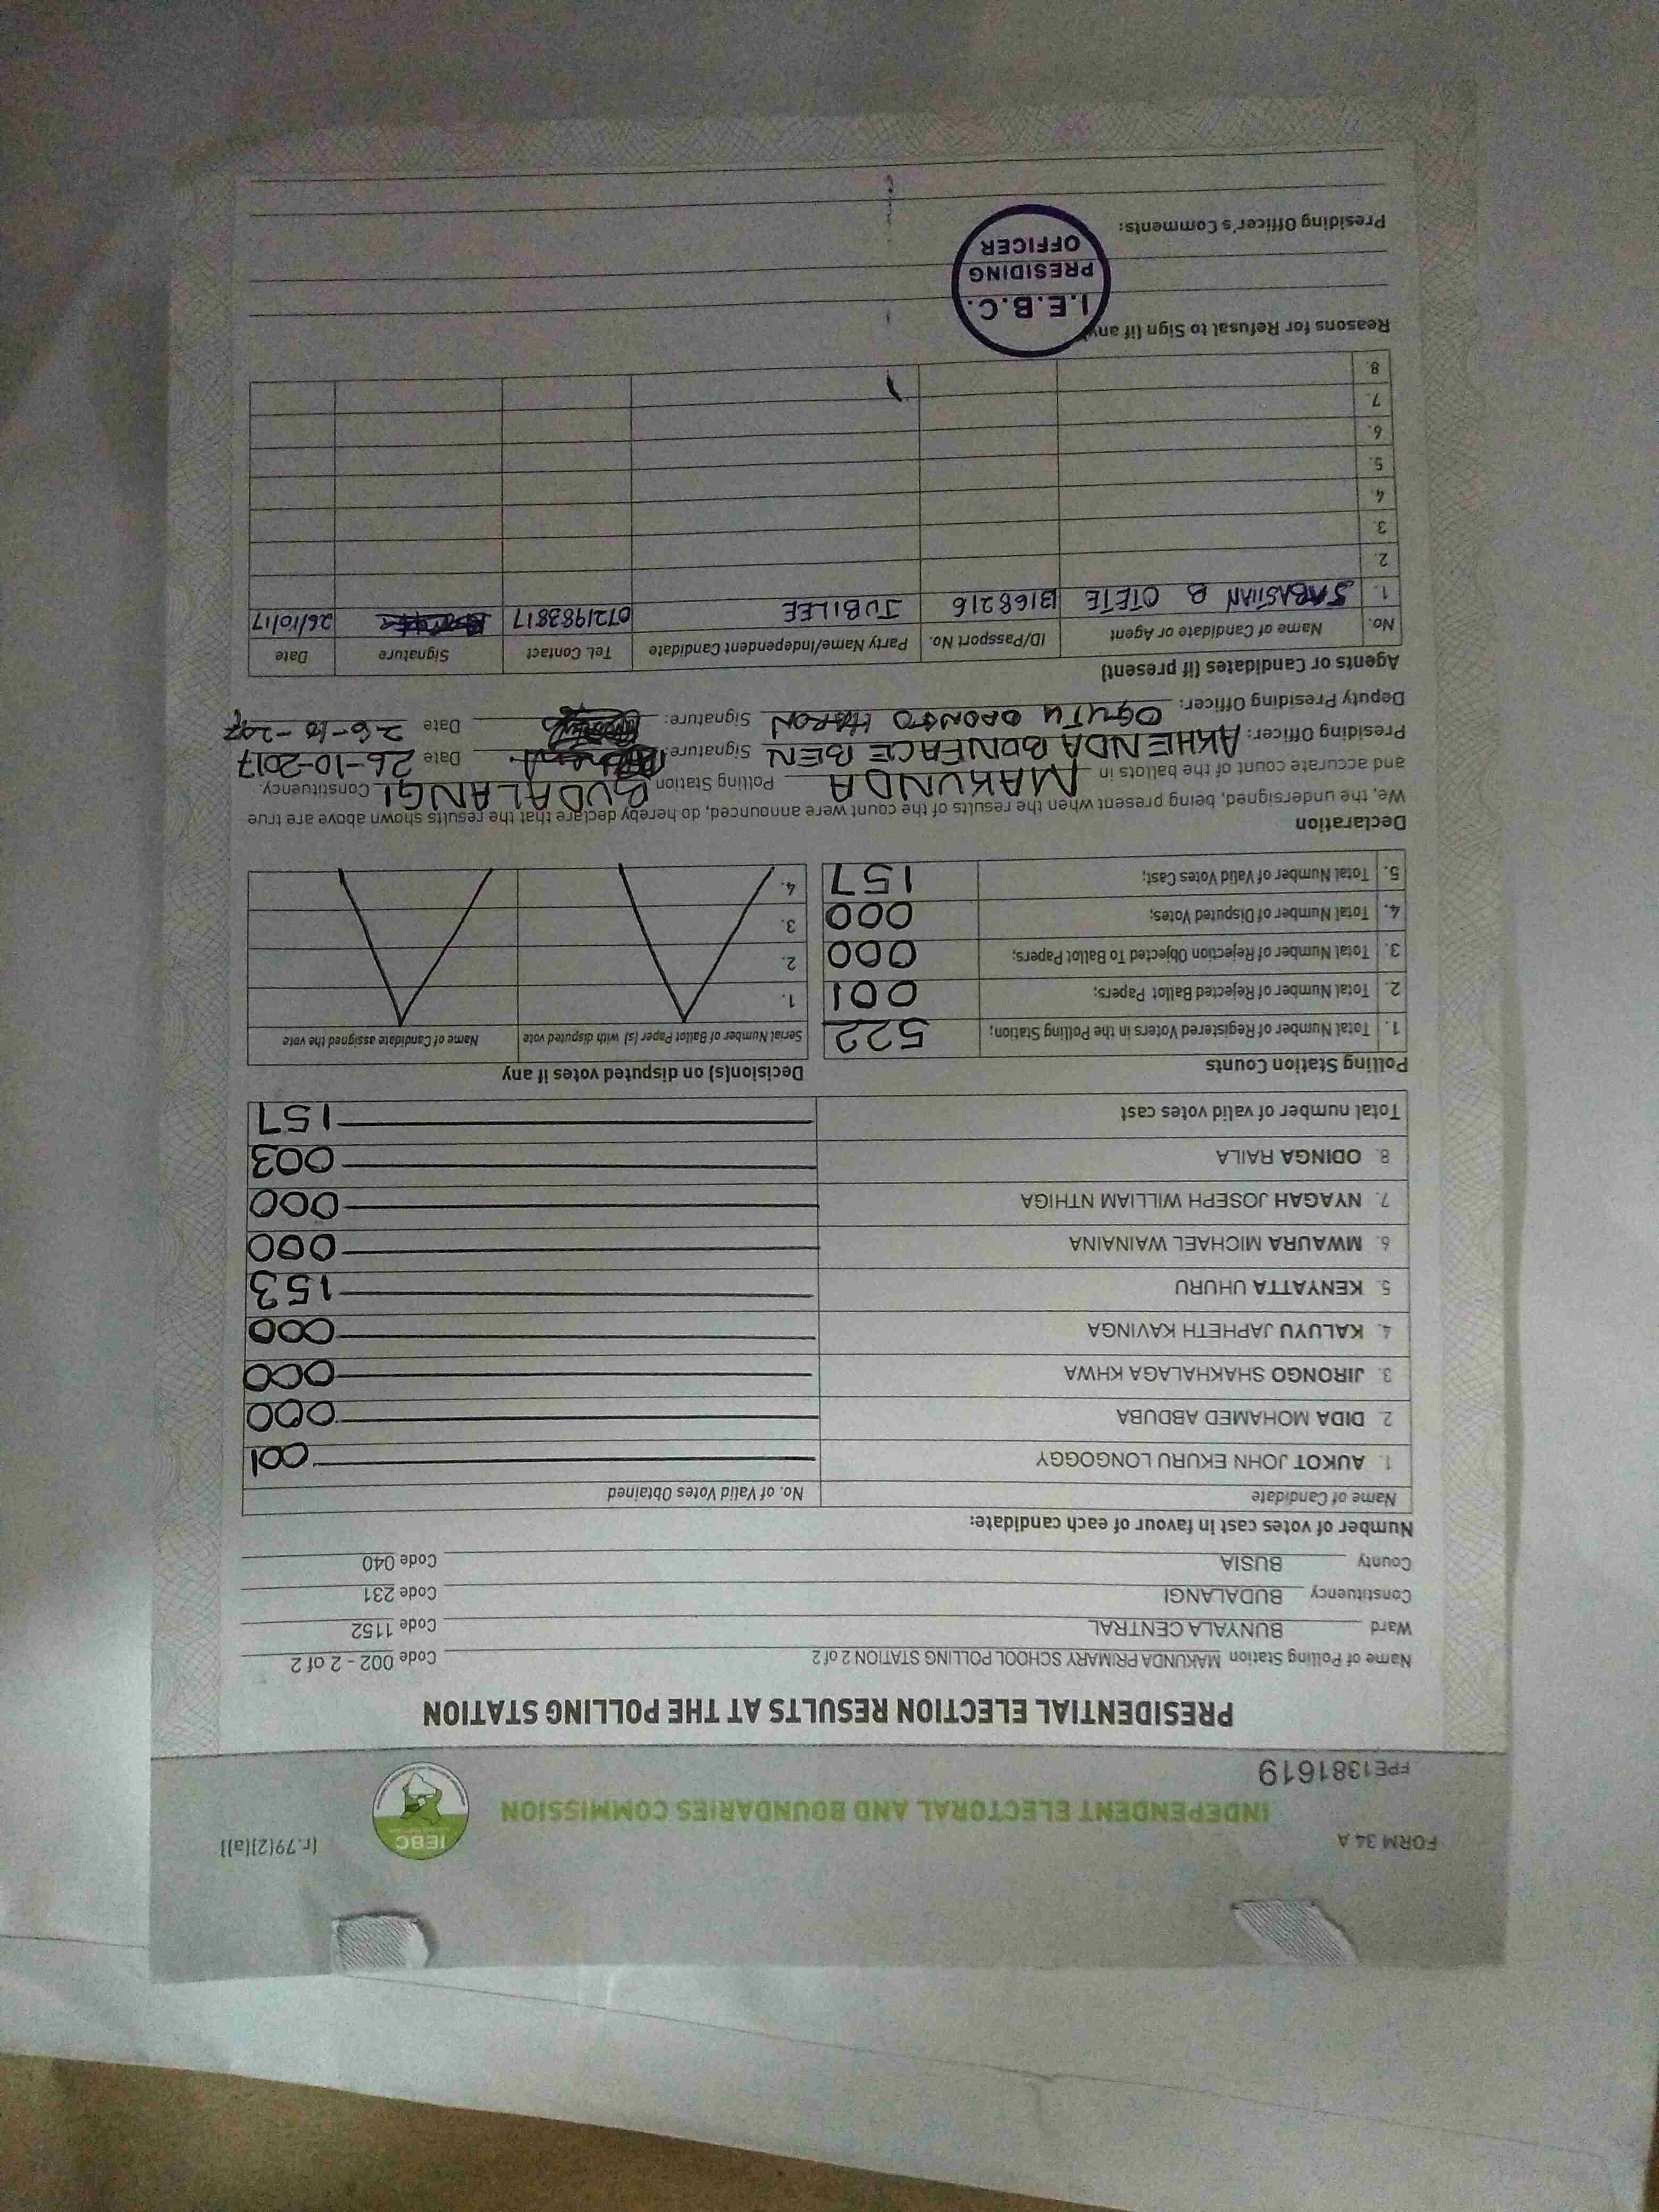 FORM 34 A
[r.79(2)(a)]
INDEPENDENT ELECTORAL AND BOUNDARIES COMMISSION
IEBC
FPE1381619
PRESIDENTIAL ELECTION RESULTS AT THE POLLING STATION
Name of Polling Station MAKUNDA PRIMARY SCHOOL POLLING STATION 2 of 2 Code 002 - 2 of 2
Ward BUNYALA CENTRAL Code 1152
Constituency BUDALANGI Code 231
County BUSIA Code 040
Number of votes cast in favour of each candidate:
Name of Candidate No. of Valid Votes Obtained
1. AUKOT JOHN EKURU LONGOGGY 001
2. DIDA MOHAMED ABDUBA 000
3. JIRONGO SHAKHALAGA KHWA 000
4. KALUYU JAPHETH KAVINGA 000
5. KENYATTA UHURU 153
6. MWAURA MICHAEL WAINAINA 000
7. NYAGAH JOSEPH WILLIAM NTHIGA 000
8. ODINGA RAILA 003
Total number of valid votes cast 157
Polling Station Counts
1. Total Number of Registered Voters in the Polling Station; 522
2. Total Number of Rejected Ballot Papers; 001
3. Total Number of Rejection Objected To Ballot Papers; 000
4. Total Number of Disputed Votes; 000
5. Total Number of Valid Votes Cast; 157
Decision(s) on disputed votes if any
Serial Number of Ballot Paper (s) with disputed vote Name of Candidate assigned the vote
1.
2.
3.
4.
Declaration
We, the undersigned, being present when the results of the count were announced, do hereby declare that the results shown above are true
and accurate count of the ballots in MAKUNDA Polling Station BUDALANGI Constituency.
Presiding Officer: AKHENDA BONFACE BEN Signature: Date 26-10-2017
Deputy Presiding Officer: OGUTU HARON Signature: Date 26-10-2017
Agents or Candidates (if present)
No. Name of Candidate or Agent ID/Passport No. Party Name/Independent Candidate Tel. Contact Signature Date
1. SABASTIAN B OTETE 13168216 JUBILEE 0721983817 26/10/17
2.
3.
4.
5.
6.
7.
8.
Reasons for Refusal to Sign (if any)
I.E.B.C.
PRESIDING
OFFICER
Presiding Officer's Comments: